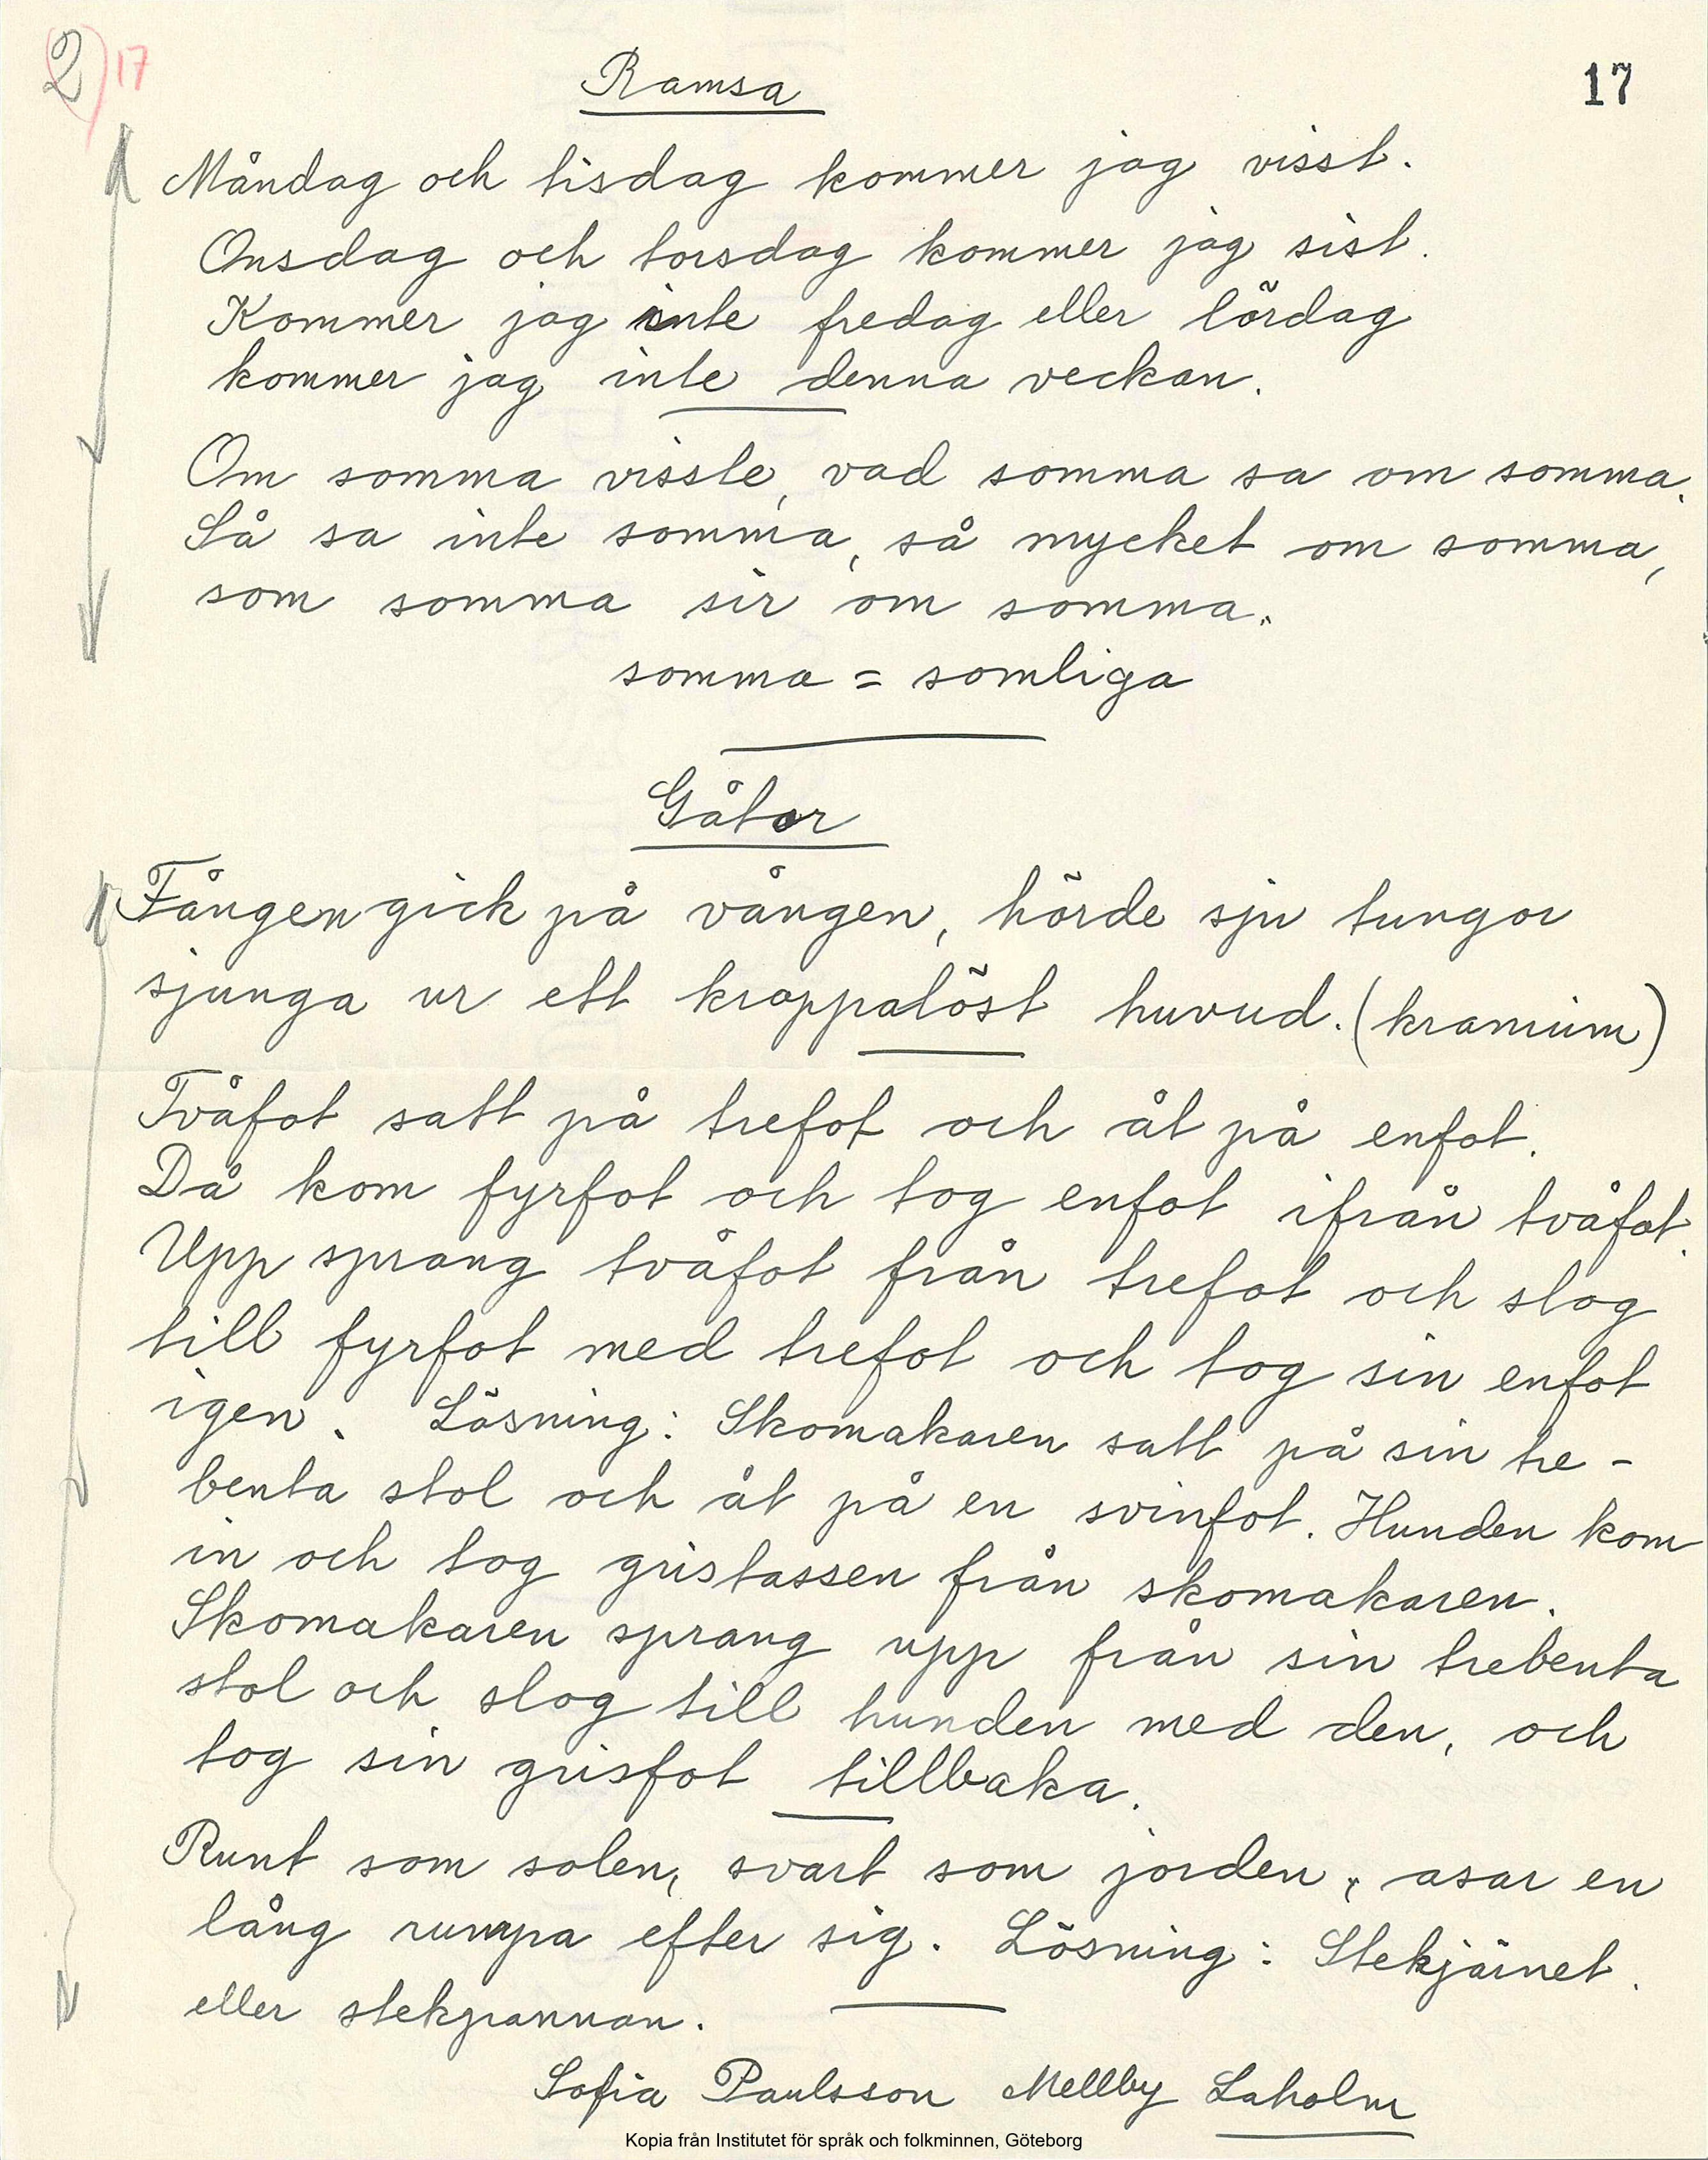 2) 17
17
Ramsa
Måndag och tisdag kommer jag visst.
Onsdag och torsdag kommer jag sist.
Kommer jag inte fredag eller lördag
kommer jag inte denna veckan.
Om somma visste, vad somma sa om somma.
Så sa inte somma, så mycket om somma,
som somma sir om somma.
somma = somliga
Gåtor
Fången gick på vången, hörde sju tungor
sjunga ur ett kroppalöst huvud. (kranium)
Tvåfot satt på trefot och åt på enfot.
Då kom fyrfot och tog enfot ifrån tvåfot.
Upp sprang tvåfot från trefot och slog
till fyrfot med trefot och tog sin enfot
igen. Lösning: Skomakaren satt på sin tre-
benta stol och åt på en svinfot. Hunden kom
in och tog gristassen från skomakaren.
Skomakaren sprang upp från sin trebenta
stol och slog till hunden med den, och
tog sin grisfot tillbaka.
Runt som solen, svart som jorden, asar en
lång rumpa efter sig. Lösning: Stekjärnet.
eller stekpannan.
Sofia Paulsson Mellby Laholm
Kopia från Institutet för språk och folkminnen, Göteborg